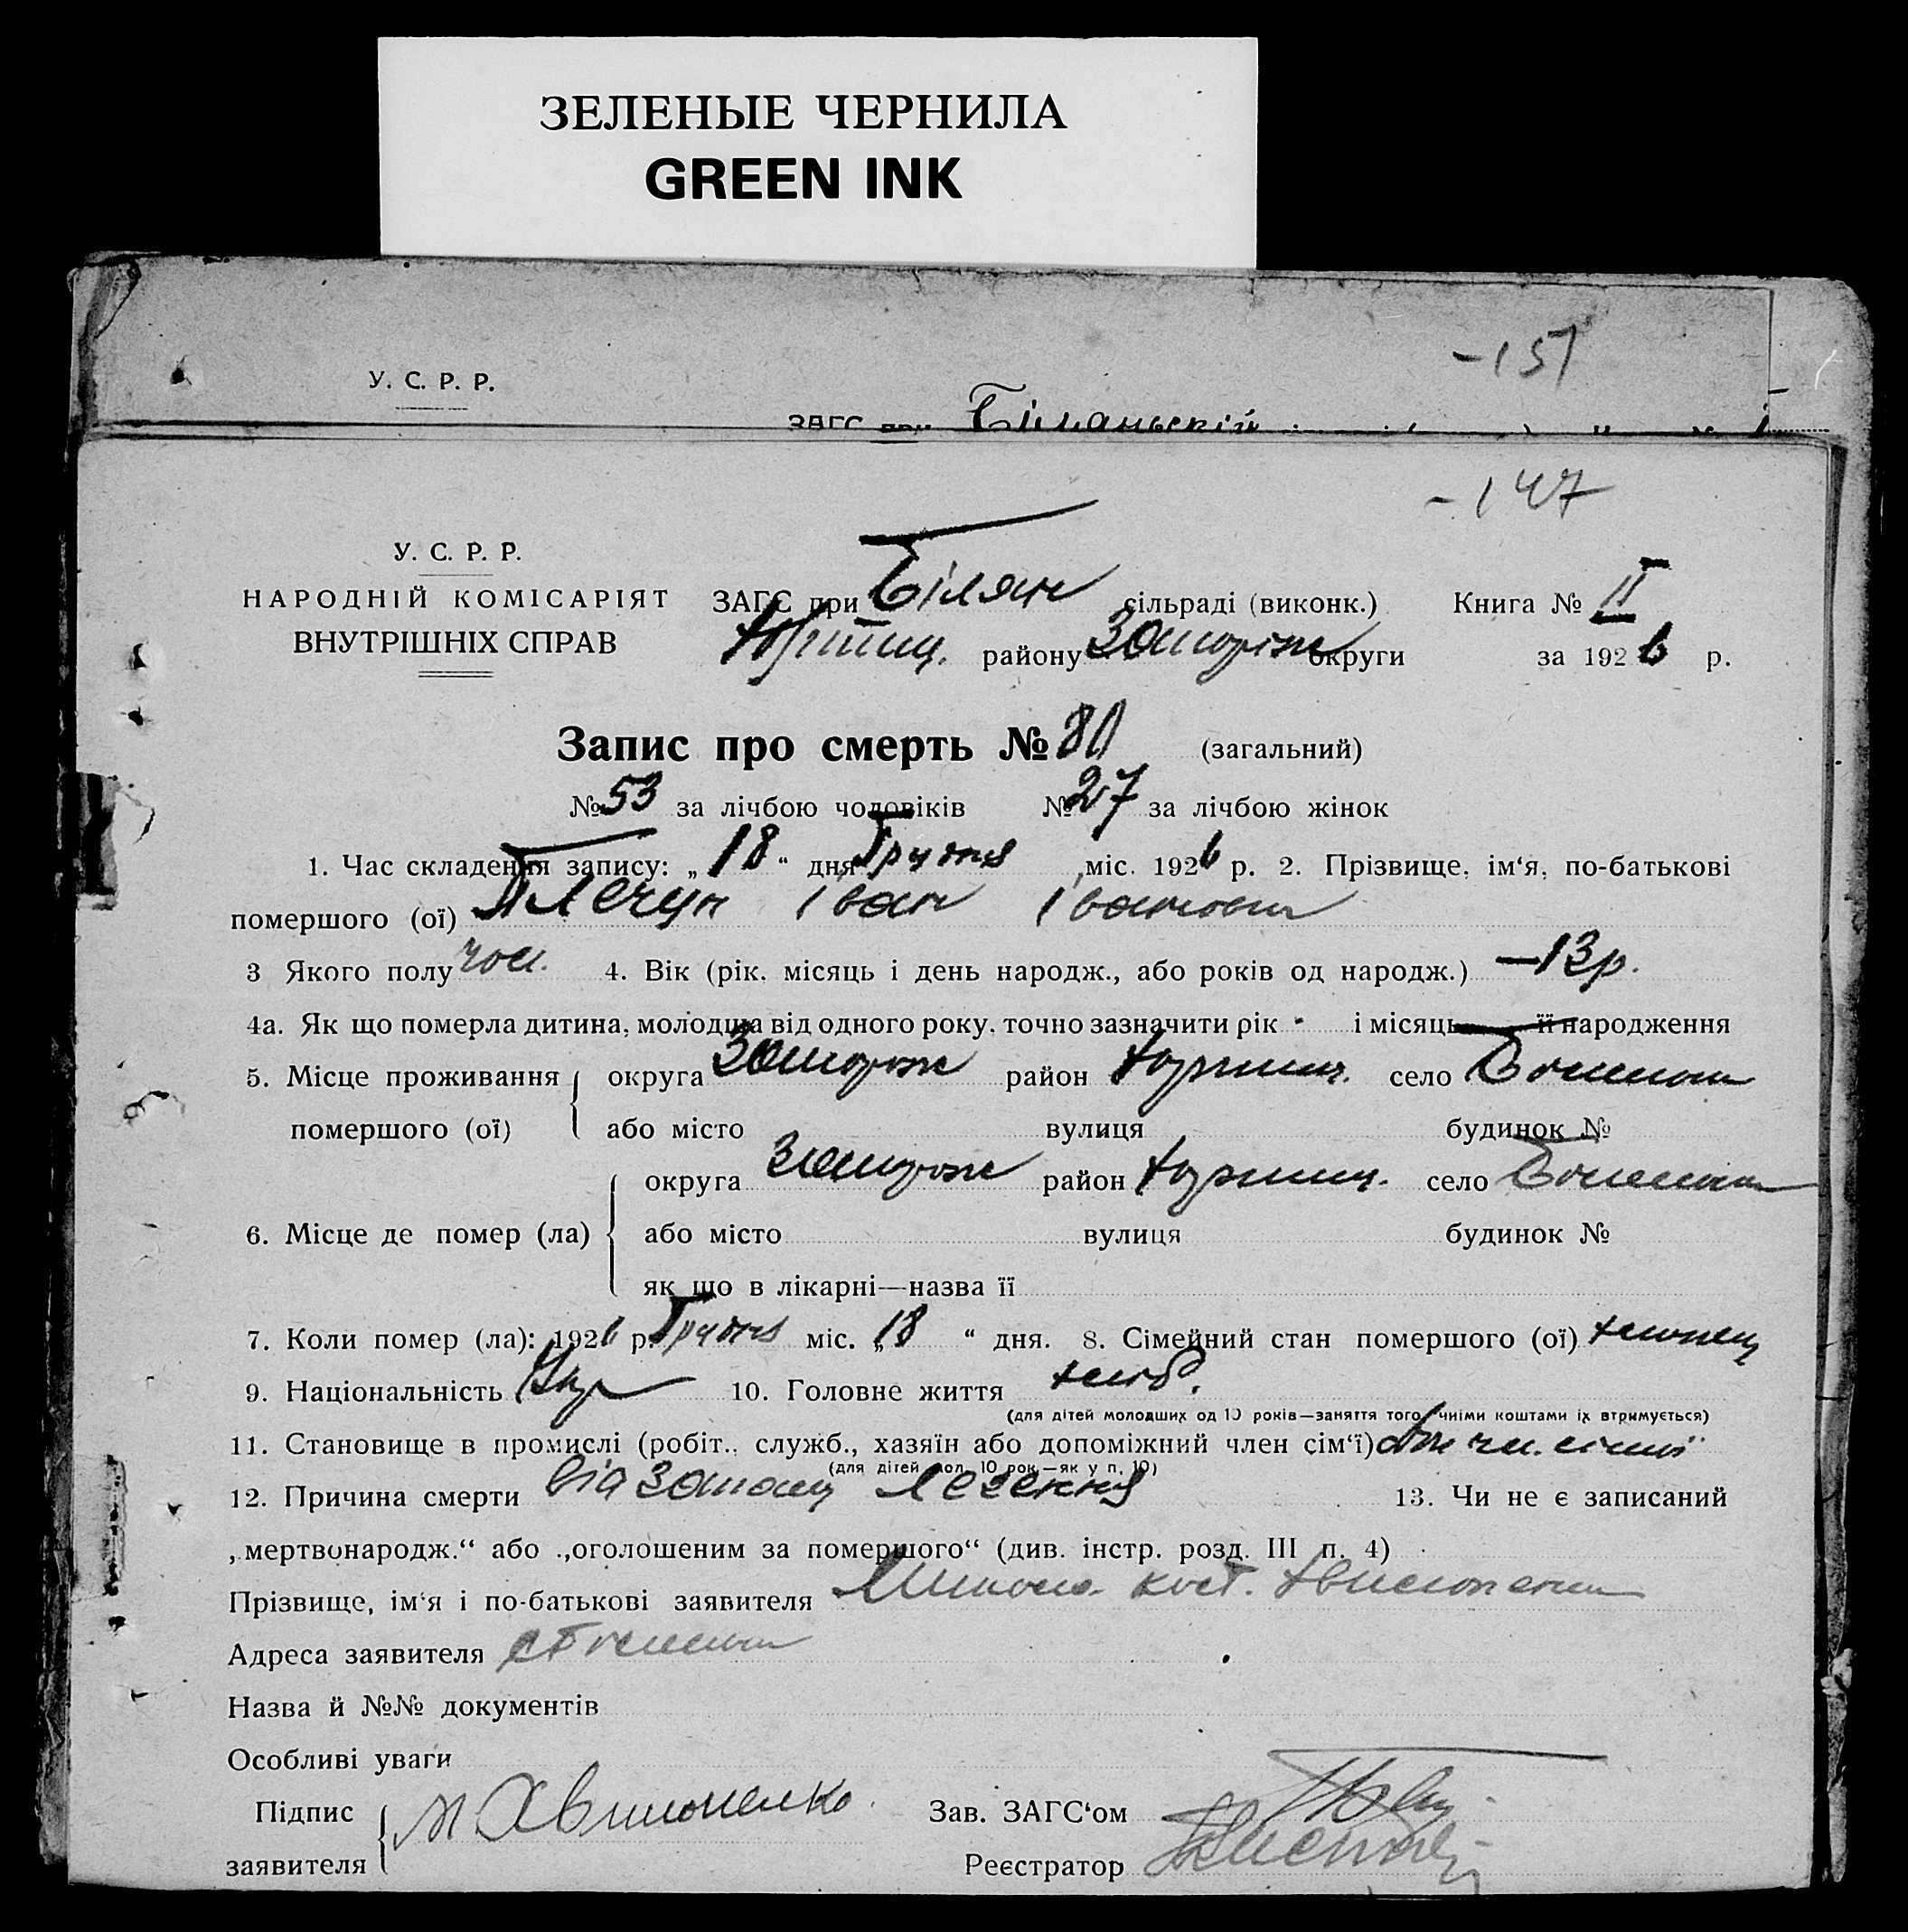 ЗЕЛЕНЫЕ ЧЕРНИЛА
GREEN INK
-151
У. С. Р. Р.
ЗАГС при Біляньскій
-147
У. С. Р. Р.
НАРОДНІЙ КОМІСАРІЯТ
ВНУТРІШНІХ СПРАВ
ЗАГС при Білян сільраді (виконк.) Книга № II
району Запоріж округи за 1926 р.
Запис про смерть № 80 (загальний)
№ 53 за лічбою чоловіків № 27 за лічбою жінок
1. Час складення запису: „18“ дня Грудня міс. 1926 р. 2. Прізвище, ім‘я, по-батькові
помершого (ої) Плечун Іван Іванович
3 Якого полу чол. 4. Вік (рік. місяць і день народж., або років од народж.) —13р.
4а. Як що померла дитина, молодша від одного року, точно зазначити рік - і місяць її народження
5. Місце проживання округа Запорож район село
помершого (ої) або місто вулиця будинок №
округа Запорож район село
6. Місце де помер (ла) або місто вулиця будинок №
як що в лікарні—назва її
7. Коли помер (ла): 1926 р. Грудня міс. „18“ дня. 8. Сімейний стан помершого (ої) хлопець
9. Національність Укр 10. Головне життя хліб.
(для дітей молодших од 10 років—заняття того, чиїми коштами їх втримується)
11. Становище в промислі (робіт., служб., хазяїн або допоміжний член сім‘ї) чл. сімії
(для дітей мол. 10 рок.—як у п. 10)
12. Причина смерти від запалу легення 13. Чи не є записаний
„мертвонародж.“ або „оголошеним за помершого“ (див. інстр. розд. III п. 4)
Прізвище, ім‘я і по-батькові заявителя
Адреса заявителя
Назва й №№ документів
Особливі уваги
Підпис М Авксоненко Зав. ЗАГС‘ом
заявителя Реєстратор